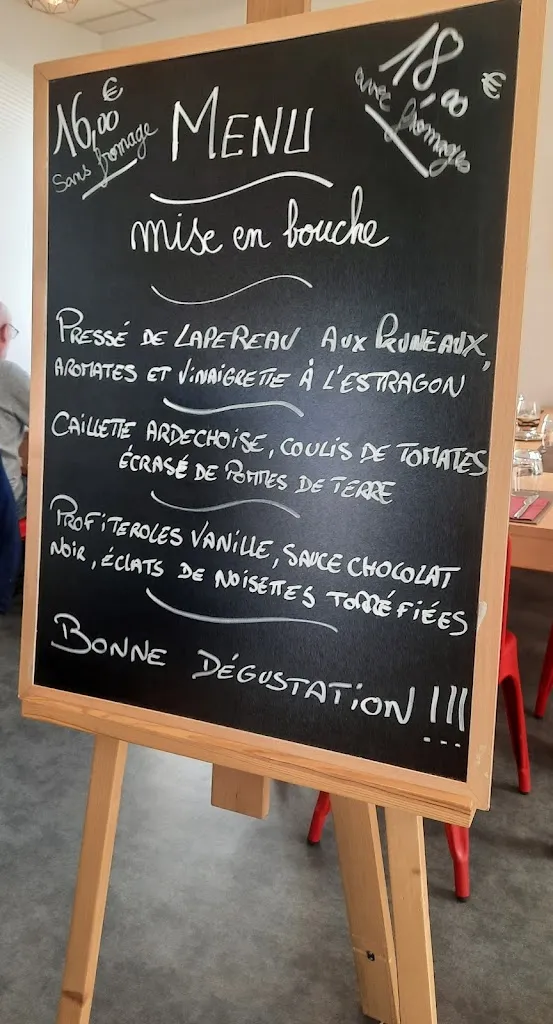 16,00 €
sans fromage
18,00 €
avec fromage
MENU
mise en bouche
PRESSÉ DE LAPEREAU AUX PRUNEAUX,
AROMATES ET VINAIGRETTE À L'ESTRAGON
CAILLETTE ARDECHOISE, COULIS DE TOMATES
ÉCRASÉ DE POMMES DE TERRE
PROFITEROLES VANILLE, SAUCE CHOCOLAT
NOIR, ÉCLATS DE NOISETTES TORRÉFIÉES
BONNE DÉGUSTATION !!!